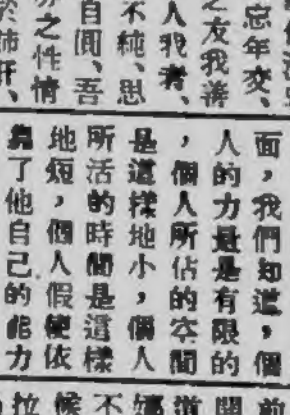 忘年交、
之友我善
人我者、
不純、思
吾
之性情
面，我們知道，個
人的力量是有限的
，個人所佔的空間
是這樣地小，個人
所活的時間是這樣
地短，個人假使依
靠了他自己的能力
前
不
候
拉